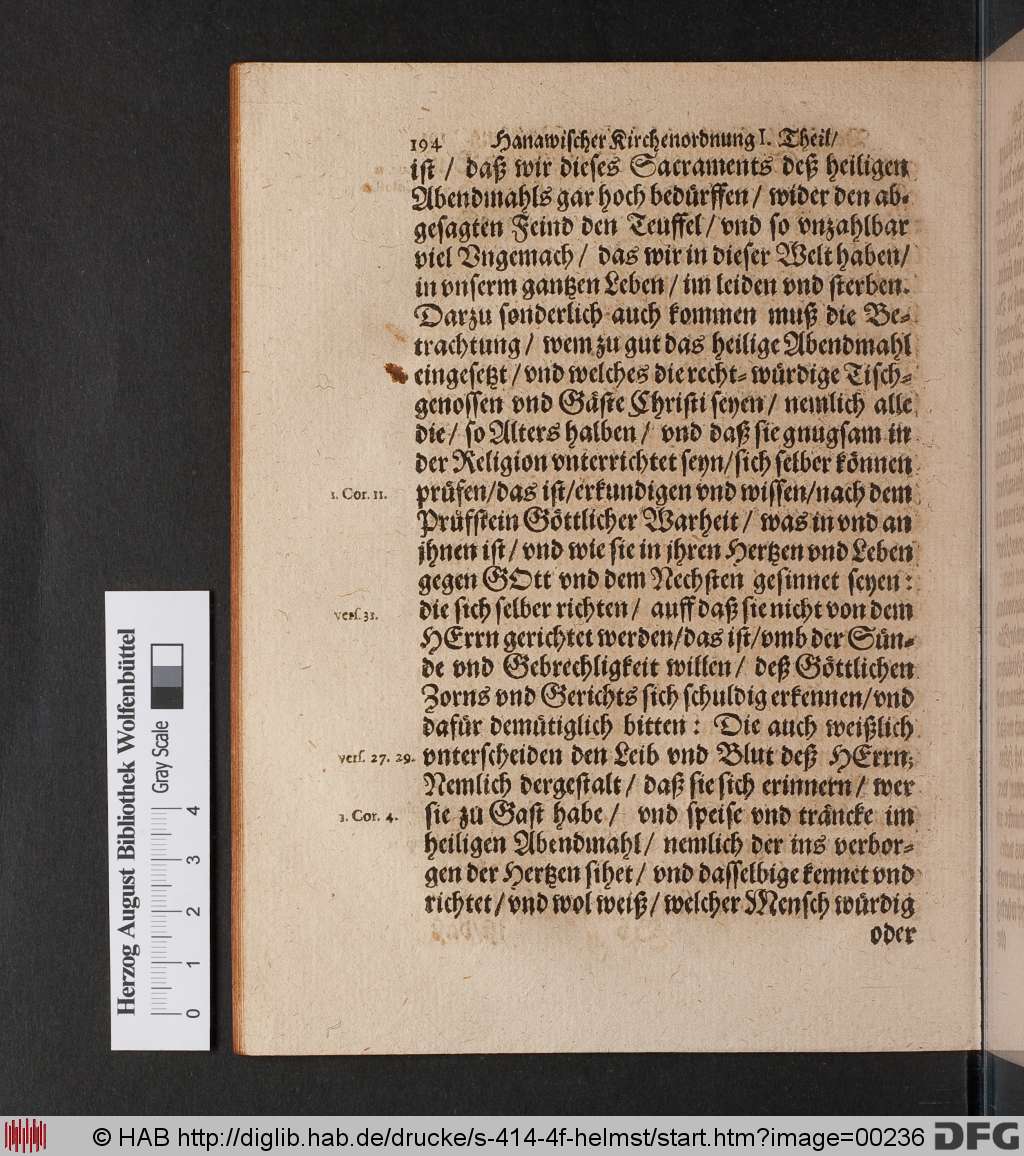 194 Hanawischer Kirchenordnung I. Theil/
ist / daß wir dieses Sacraments deß heiligen
Abendmahls gar hoch bedürffen / wider den ab-
gesagten Feind den Teuffel / vnd so vnzahlbar
viel Vngemach / das wir in dieser Welt haben/
in vnserm gantzen Leben / im leiden vnd sterben.
Darzu sonderlich auch kommen muß die Be-
trachtung / wem zu gut das heilige Abendmahl
eingesetzt / vnd welches die recht-würdige Tisch-
genossen vnd Gäste Christi seyen / nemlich alle
die / so Alters halben / vnd daß sie gnugsam in
der Religion vnterrichtet seyn/sich selber können
1. Cor. 11. prüfen/das ist/erkundigen vnd wissen/nach dem
Prüfstein Göttlicher Warheit / was in vnd an
jhnen ist / vnd wie sie in jhren Hertzen vnd Leben
gegen GOtt vnd dem Nechsten gesinnet seyen:
vers. 31. die sich selber richten / auff daß sie nicht von dem
HErrn gerichtet werden/das ist/vmb der Sün-
de vnd Gebrechligkeit willen / deß Göttlichen
Zorns vnd Gerichts sich schuldig erkennen/vnd
dafür demütiglich bitten: Die auch weißlich
vers. 27. 29. vnterscheiden den Leib vnd Blut deß HErrn;
Nemlich dergestalt / daß sie sich erinnern / wer
1. Cor. 4. sie zu Gast habe / vnd speise vnd träncke im
heiligen Abendmahl / nemlich der ins verbor-
gen der Hertzen sihet / vnd dasselbige kennet vnd
richtet / vnd wol weiß / welcher Mensch würdig
oder
Herzog August Bibliothek Wolfenbüttel
Gray Scale
0 1 2 3 4
© HAB http://diglib.hab.de/drucke/s-414-4f-helmst/start.htm?image=00236 DFG